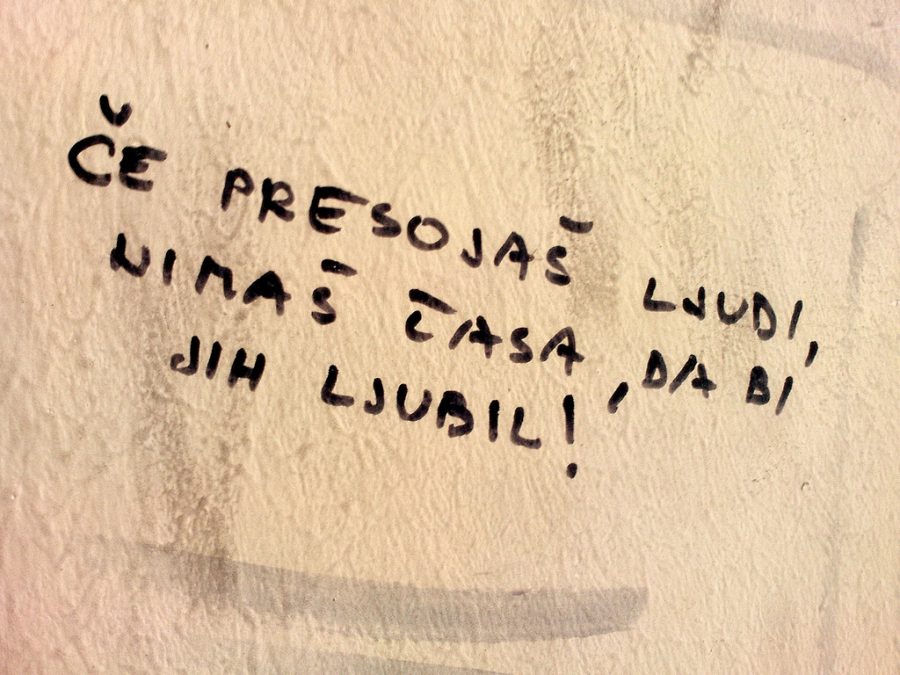 ČE PRESOJAŠ LJUDI,
NIMAŠ ČASA, DA BI
JIH LJUBIL!